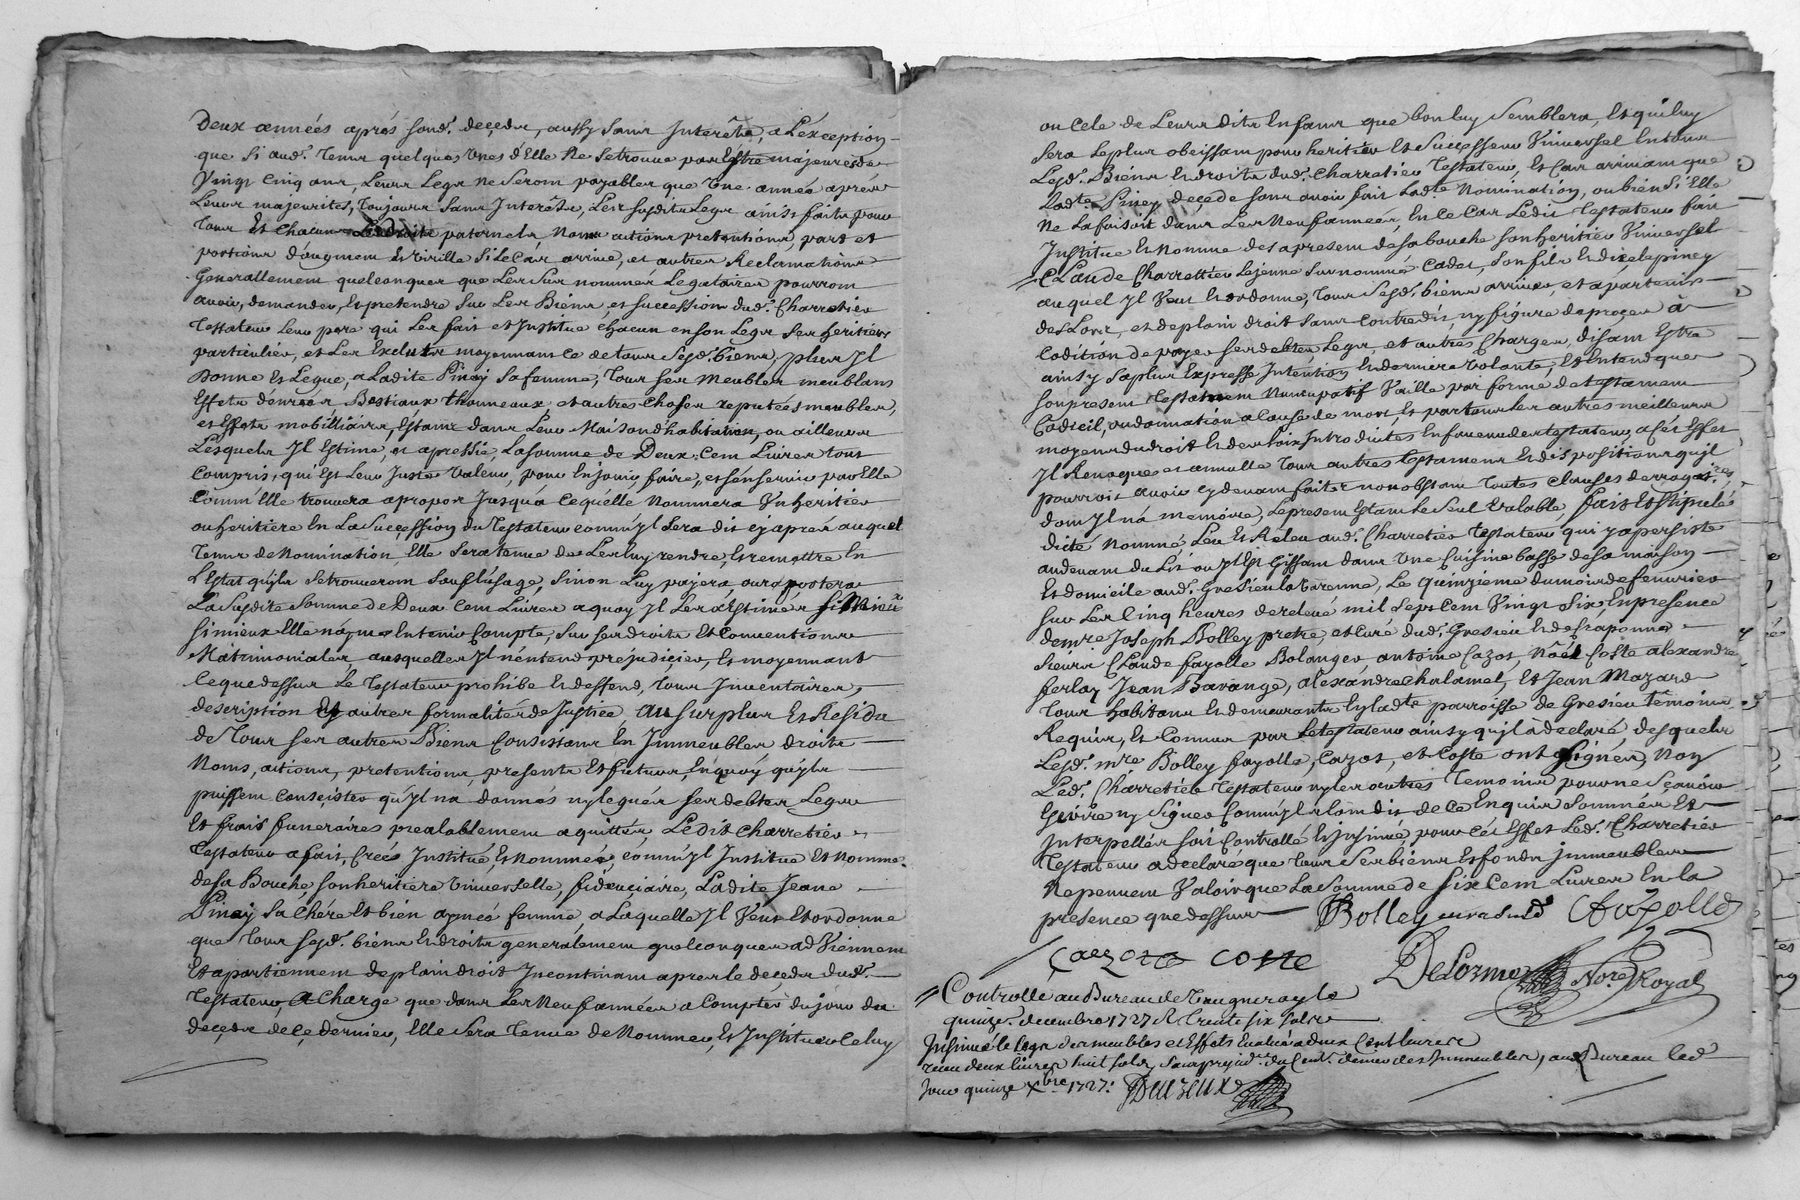 Deux années aprés sond. deceda, aussy sans Interêts, a L'exception
que si aud. Tems quelques Unes d'Elle ne se trouve pas Estre majeures de
Vingt Cinq ans, Leurs Legs ne seront payables que Une année aprés
Leurs majeurites, Toujours sans Interêts, Les susdits Legs ainsi faits pour
Tous Et Chacun Les droits paternels Noms actions pretentions, part et
portions d'augment Et Virille si Le Cas arrive, et autres Reclamations
Generallement quelconques que Les sus nommés Legataires pourront
avoir, demander, Et pretendre sur Les Biens, et succession dud. Charretier
Testateur Leur pere qui Les fait et Institue Chacun en son Legs ses heritiers
particuliers, et Les Exclut moyennant Ce de tous sesd. biens, plus Jl
Donne Et Legue, a Ladite Pinay sa femme, Tous ses Meubles meublans
Effets denrées Bestiaux Thonneaux, et autres Choses reputées meubles,
et Effets mobilliaires, Estans dans Leur Maison d'habitation, ou ailleurs
Lesquels Jl Estime, et apressie, La somme de Deux Cent Livres tout
Compris, qui Est Leur Juste Valeur, pour En jouir faire, et s'en servir par Elle
Comm'Elle trouvera apropos Jusqu'a Ce qu'elle Nommera Un heritier
ou heritiere En La Succession du Testateur comm'Jl sera dit cy aprés auquel
Tems de Nomination, Elle sera tenue de Les luy rendre, Et remettre En
L'Estat qu'jls se trouveront sauf L'usage, sinon Luy payera, ou raportera
La susdite somme de Deux Cent Livres a quoy Jl Les a Estimés si Mieux
si mieux Elle n'ayme En tenir Compte, sur ses droits Et Conventions
Matrimoniales, ausquelles Jl n'entend préjudicier, Et moyennant
Ce que dessus Le Testateur prohibe Et deffend, Tous Inventaires,
description Et autres formalités de Justice, au surplus Et Residu
de Tous ses autres Biens Consistans En Immeubles droits
Noms, actions, pretentions, presents Et futurs, En quoy qu'jls
puissent Consister qu'Jl na donnés ny legués ses debtes Legs
Et frais funeraires prealablement aquittés, Ledit Charretier
Testateur a fait, Créé Institué, Et Nommé, comm'Jl Institue Et Nomme
de sa Bouche son heritiere Universelle, fideuciaire, Ladite Jeane
Pinay sa Chére Et bien aymée femme, a Laquelle Jl Veut Et ordonne
que Tous sesd. biens Et droits generalement quelconques ad Viennent
Et apartiennent de plain droit Incontinant apres le deceds dud.
Testateur, a Charge que dans Les Neuf années a Compter du jour du
deceds de Ce dernier, Elle sera Tenue de Nommer, Et Instituer Celuy
ou Cele de Leurs dits Enfans que bon luy Semblera, Et qui luy
sera Le plus obeissant pour heritier Et Successeur Universel En tous
Lesd. Biens Et droits dud. Charretier Testateur, Et Cas arrivant que
Ladte. Piney decede sans avoir fait Ladte Nomination, ou bien si Elle
Ne La faisoit dans Les Neuf années, En Ce Cas Ledit Testateur fait
Institue Et Nomme des a present de sa bouche son heritier Universel
Claude Charrettier Le jeune surnommé Cadet, son fils Et de ce Le piney
auquel Jl Veut Et ordonne, Tous sesd. biens arriver, et apartenir
des Lors, et de plain droit sans Contredit, ny figure de proces à
Codition de payer ses debtes Legs, et autres Charges, disant Estre
ainsy sa plus Expresse Intention Et derniere Volonté, Et Entand que
son present Testament Nuncupatif Vaille par forme de testament
Codicil, ou donnation a Cause de mort, Et par tous les autres meilleurs
moyens du droit Et des Loix Introduites En faveur des testateurs, a Cés Effet
Jl Revoque et annulle Tous autres Testamens Et dispositions qu'jl
pourroit avoir cy devant faites nonobstant Toutes Clauses derrogatres,
dont Jl n'a memoire, Le present Estant Le seul Valable, fait Et stipulé
dicté Nommé Leu Et Releu aud. Charretier Testateur qui y a persisté
audevant du Lit ou Jl Est Gissant dans Une Cuisine basse de sa maison
Et domicile aud. Gresieu la Varenne, Le quinzieme du mois de fevrier
sur Les Cinq heures de relevé mil sept Cent Vingt Six, En presence
de mre. Joseph Bolley pretre, et Curé dud. Gresieu Et de Craponne
sieurs Claude fayolle Bolanger, antoine Cazot, Nöel Coste alexandre
ferlay Jean Barange, alexandre Chalamel, Et Jean Mazard
Tous habitans Et demeurants En Ladte parroisse de Gresieu temoins
Requis, Et Connus par Le testateur ainsy qu'jl à declaré desquels
Lesd. mre Bolley fayolle, Cazot, et Coste ont signés, Non
Led. Charretiér Testateur ny les autres Temoins pour ne sçavoir
Ecrire ny signer Comm'jls l'ont dit de Ce Enquis sommés Et
Interpellés soit Controllé Et Insinué, pour Cés Effet Led. Charretiér
Testateur a declaré que Tous Ses biens Et fonds jmmeubles
Ne peuvent Valoir que La somme de six Cent Livres En la
presence que dessus Bolley curé sud. C fayolle
Cazot coste
Delorme Nore Royal
Controllé au Bureau de Vaugneray le
quinze decembre 1727 R trente six sols
Insinué le legs des meubles et Effets Evalué a deux Cent livres
recu deux livres huit sols, sans prejud. du Cent. denier des Immeubles, au Bureau led
Jour quinze Xbre 1727.